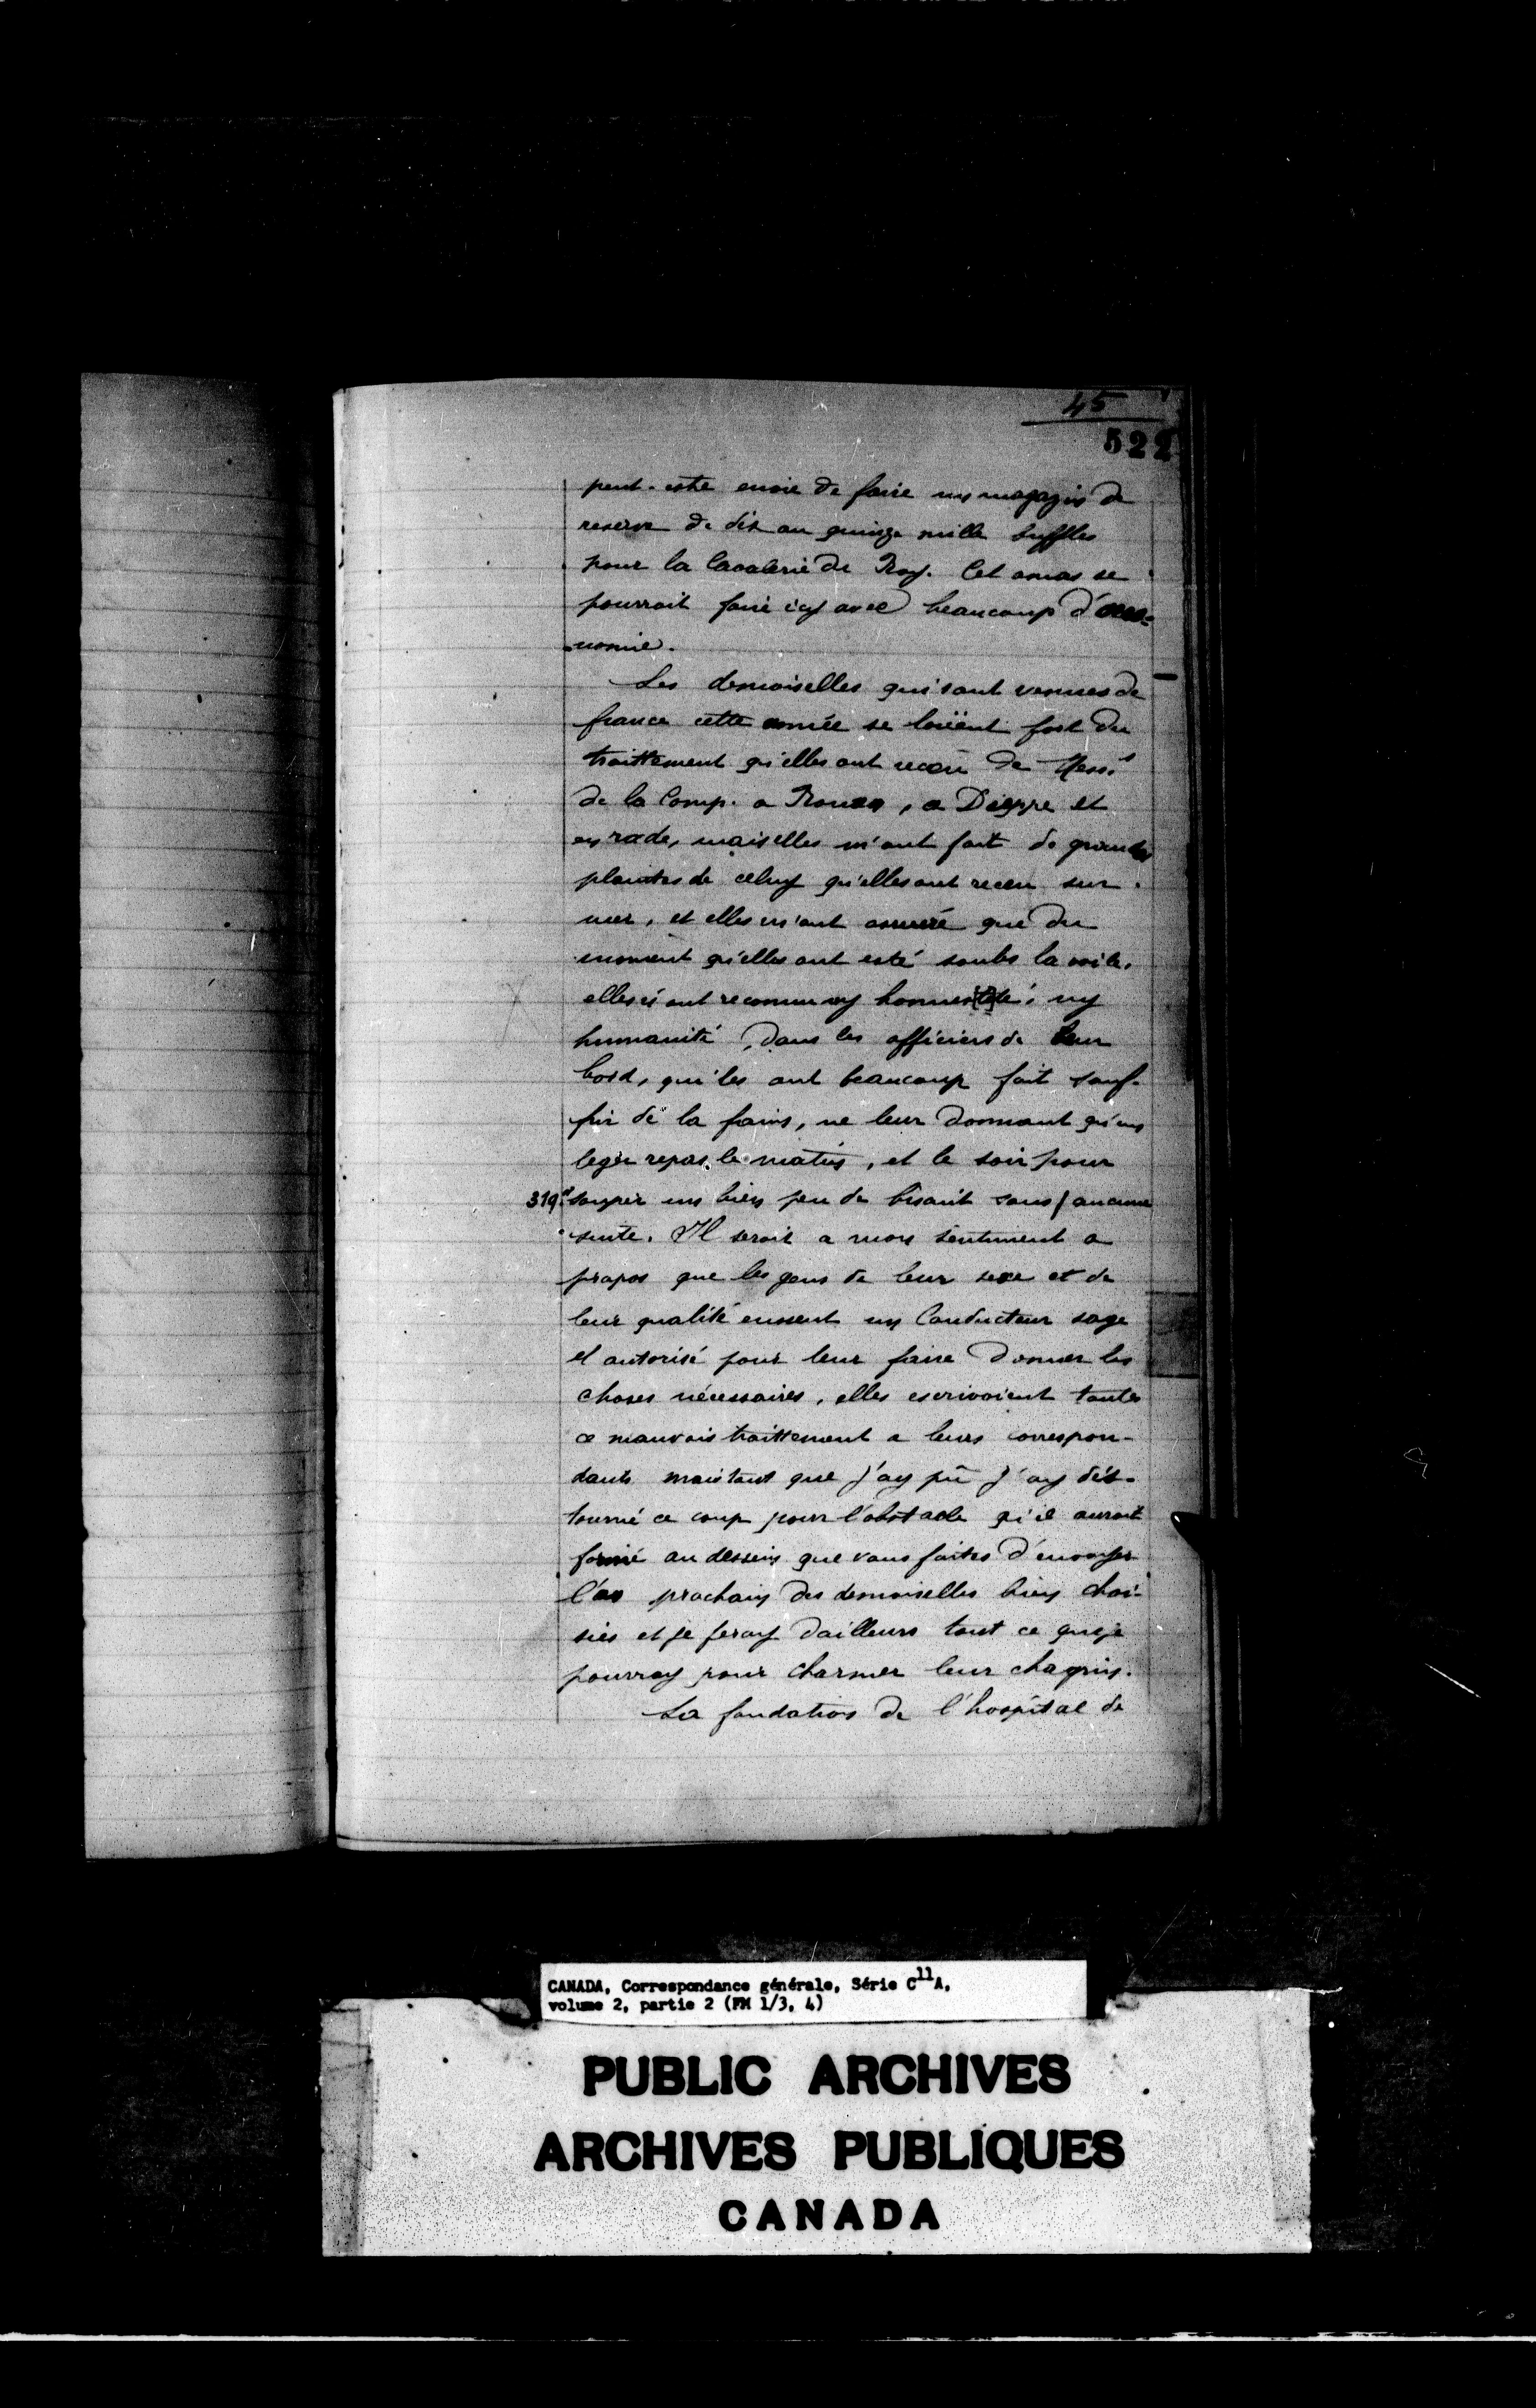 45
522
peut-estre envie de faire un magazin de
reserve de dix ou quinze mille buffles
pour la Cavalerie du Roy. Cet amas se
pourroit faire icy avec beaucoup d'oeco-
nomie.
Les demoiselles qui sont venues de
france cette année se loüent fort du
traittement qu'elles ont receu de Messrs
de la Comp. a Rouen, a Dieppe et
en rade, mais elles m'ont fait de grandes
plaintes de celuy qu'elles ont receu sur
mer, et elles m'ont asseuré que du
moment qu'elles ont esté soubs la voile,
elles n'ont reconnu ny honnesteté, ny
humanité, dans les officiers de leur
bord, qui les ont beaucoup fait souf-
frir de la faim, ne leur donnant qu'un
leger repas le matin, et le soir pour
319 souper un bien peu de biscuit sans / aucune
suite. Il seroit a mon sentiment a
propos que les gens de leur sexe et de
leur qualité eussent un Conducteur sage
et autorisé pour leur faire donner les
choses nécessaires, elles escrivoient toutes
ce mauvais traittement a leurs correspon-
dants mais tant que j'ay pû j'ay dés-
tourné ce coup pour l'obstacle qu'il auroit
formé au dessein que vous faites d'envoyer
l'an prochain des demoiselles bien choi-
sies et je feray dailleurs tout ce que je
pourray pour charmer leur chagrin.
La fondation de l'hospital de
CANADA, Correspondance générale, Série C11A,
volume 2, partie 2 (FM 1/3, 4)
PUBLIC ARCHIVES
ARCHIVES PUBLIQUES
CANADA